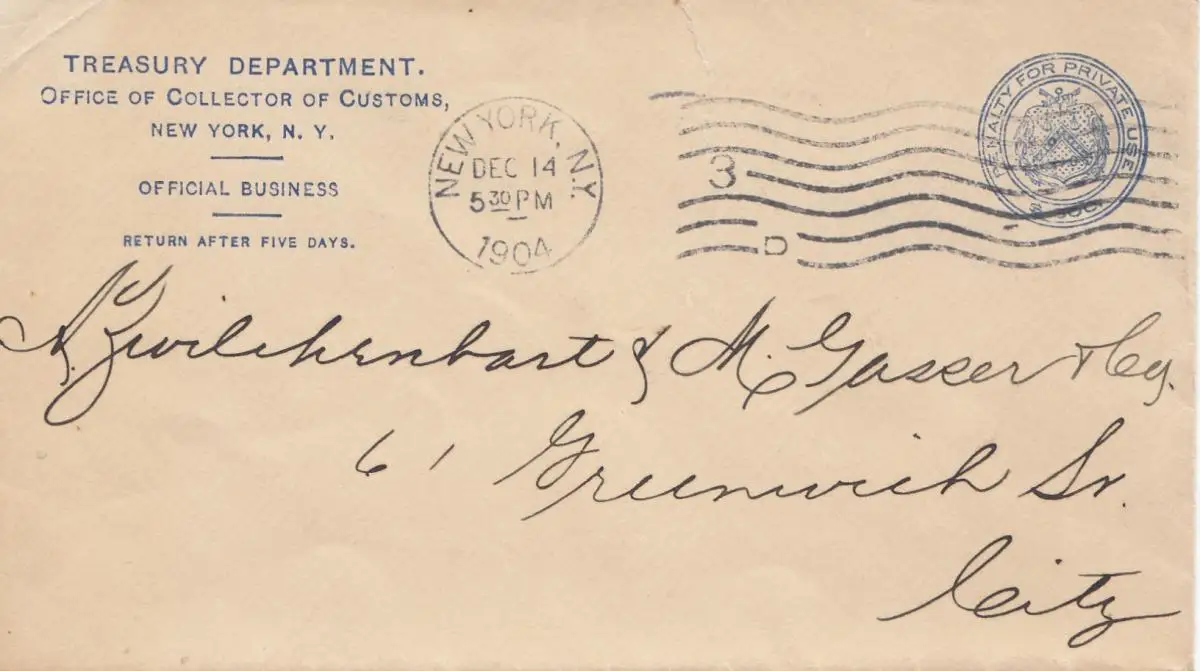 TREASURY DEPARTMENT.
OFFICE OF COLLECTOR OF CUSTOMS,
NEW YORK, N. Y.
OFFICIAL BUSINESS
RETURN AFTER FIVE DAYS.
NEW YORK, N.Y.
DEC 14
5 30 PM
1904
3
D
PENALTY FOR PRIVATE USE
$ 300.
A. Zwilchenbart & M. Gasser & Co.
61 Greenwich St.
City